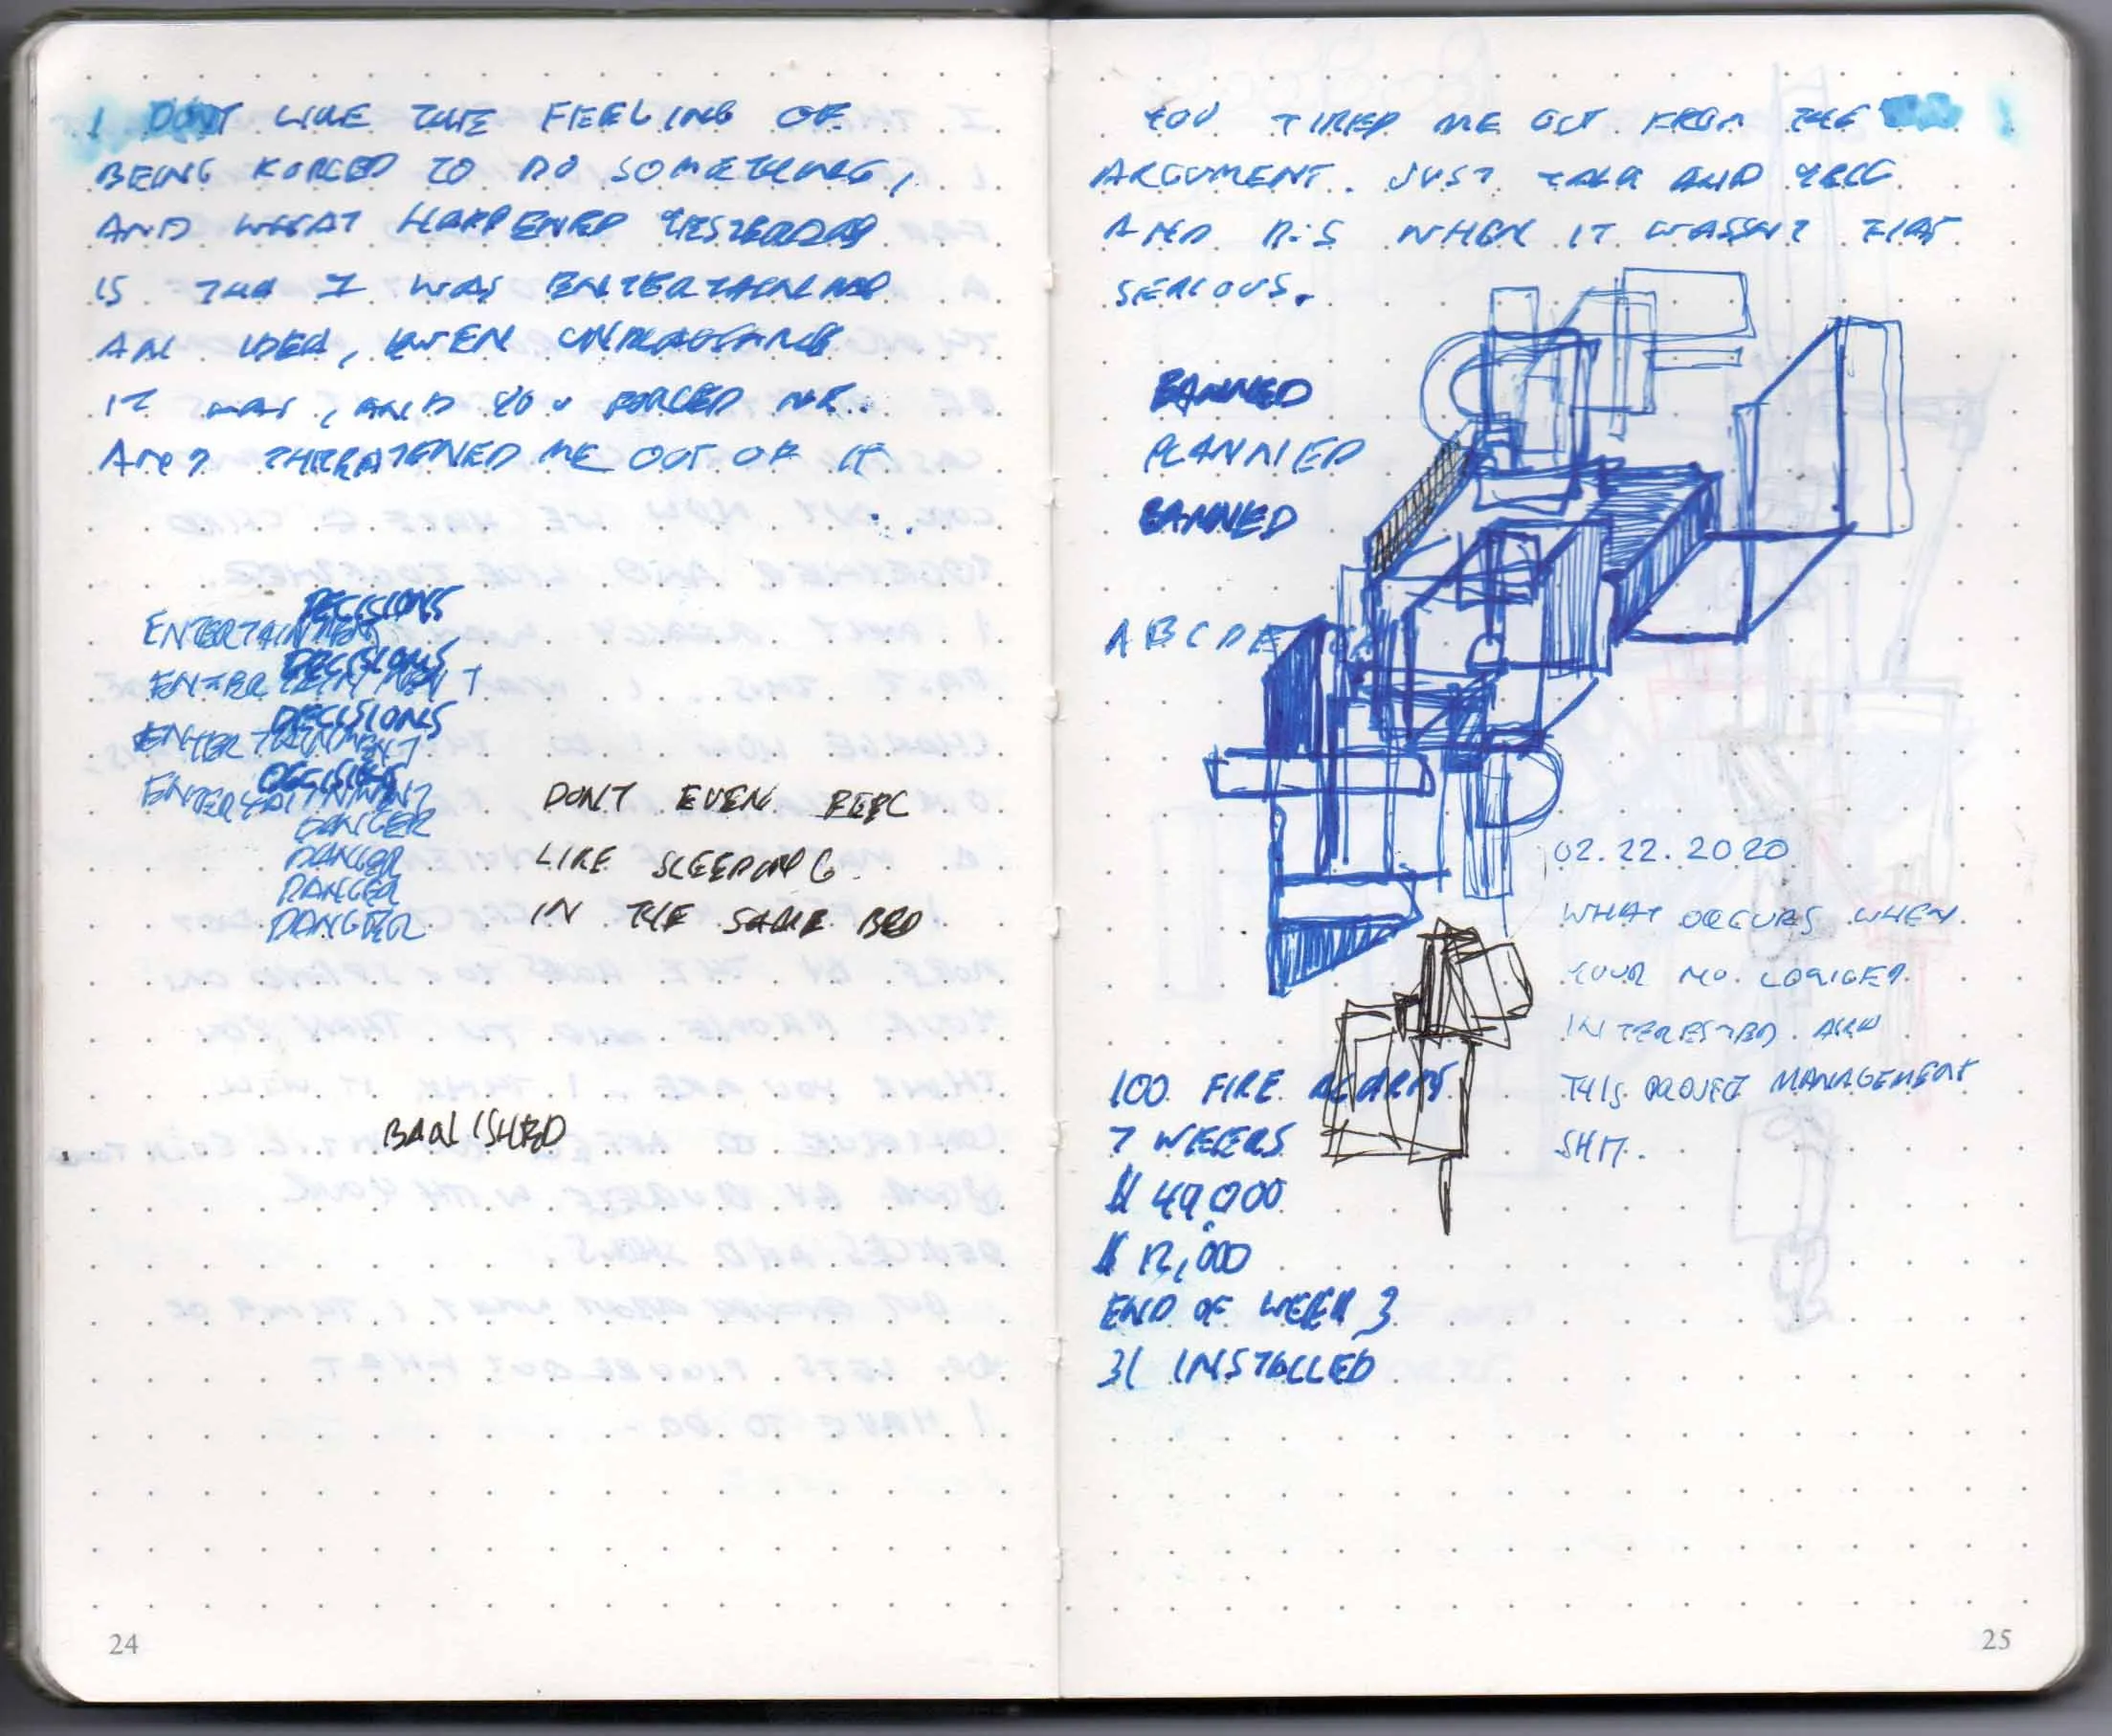 I DONT LIKE THE FEELING OF
BEING FORCED TO DO SOMETHING,
AND WHAT HAPPENED YESTERDAY
IS THA I WAS ENTERTAINING
AN IDEA, EVEN
IT WAS, AND YOU FORCED ME.
AND THREATENED ME OUT OF IT
DECISIONS
ENTERTAINMENT
DECISIONS
ENTERTAINMENT
DECISIONS
ENTERTAINMENT
DECISIONS
ENTERTAINMENT
DANGER
DANGER
DANGER
DANGER
DONT EVEN FEEL
LIKE SLEEPING
IN THE SAME BED
BANISHED
24
YOU TIRED ME OUT FROM THE
ARGUMENT. JUST TALK AND YELL
AND WHEN IT WASSNT THAT
SERIOUS.
BANNED
PLANNED
BANNED
ABCDE
02.22.2020
WHAT OCCURS WHEN
YOUR NO LONGER
INTERESTED
THIS PROJECT MANAGEMENT
SHIT.
100 FIRE ALARMS
7 WEEKS
$ 49,000
$ 12,000
END OF WEEK 3
31 INSTALLED
25